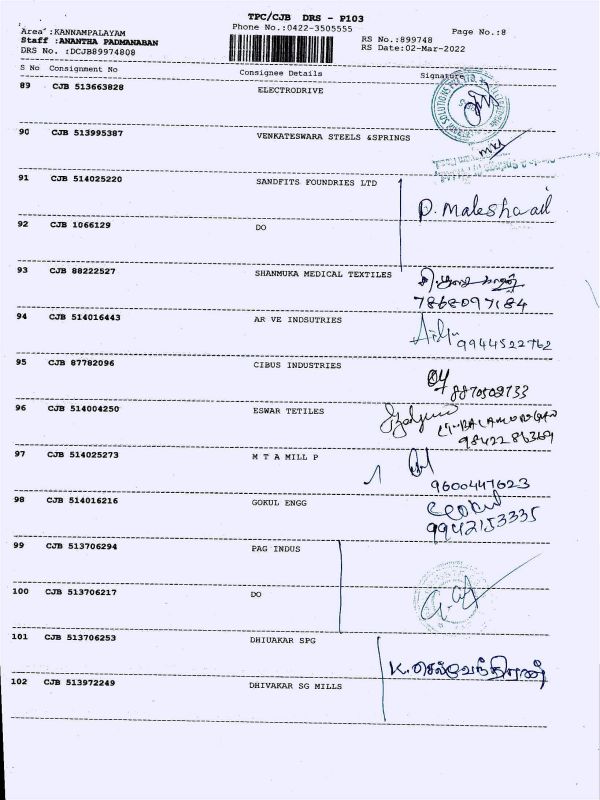 TPC/CJB DRS - P103
Area :KANNAMPALAYAM
Phone No.:0422-3505555
Page No.:8
Staff :ANANTHA PADMANABAN
RS No.:899748
DRS No. :DCJB89974808
RS Date:02-Mar-2022
S No Consignment No Consignee Details Signature
89 CJB 513663828 ELECTRODRIVE
90 CJB 513995387 VENKATESWARA STEELS &SPRINGS
91 CJB 514025220 SANDFITS FOUNDRIES LTD
P. Maleshaail
92 CJB 1066129 DO
93 CJB 88222527 SHANMUKA MEDICAL TEXTILES
7868097184
94 CJB 514016443 AR VE INDSUTRIES
9944522762
95 CJB 87782096 CIBUS INDUSTRIES
8870509733
96 CJB 514004250 ESWAR TETILES
97 CJB 514025273 M T A MILL P
9600447623
98 CJB 514016216 GOKUL ENGG
Gokul
9942153335
99 CJB 513706294 PAG INDUS
100 CJB 513706217 DO
101 CJB 513706253 DHIUAKAR SPG
K. செல்வேந்திரன்
102 CJB 513972249 DHIVAKAR SG MILLS